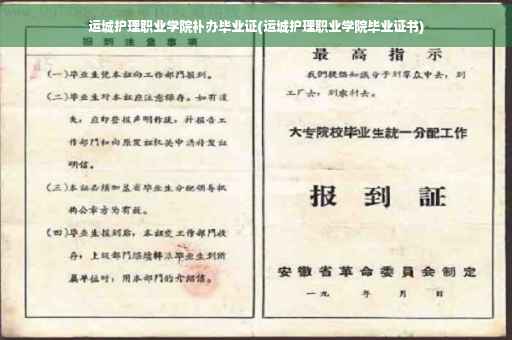 运城护理职业学院补办毕业证(运城护理职业学院毕业证书)
报到注意事项
(一)毕业生凭本证向工作部門报到。
(二)毕业生对本证应注意保存。如有遺
失，应即登报声明作废，并报告工
作部門和向原发证机关申请补发证
明信。
(三)本证必须加盖省毕业生分配领导机
构公章方为有效。
(四)毕业生报到后，本证交工作部門收
存；上级部門
单位时，用本部門的介绍信。
最高指示
我們提倡知识分子到羣众中去，到
工厂去，到农村去。
大专院校毕业生統一分配工作
报到証
安徽省革命委員会制定
一九 年 月 日